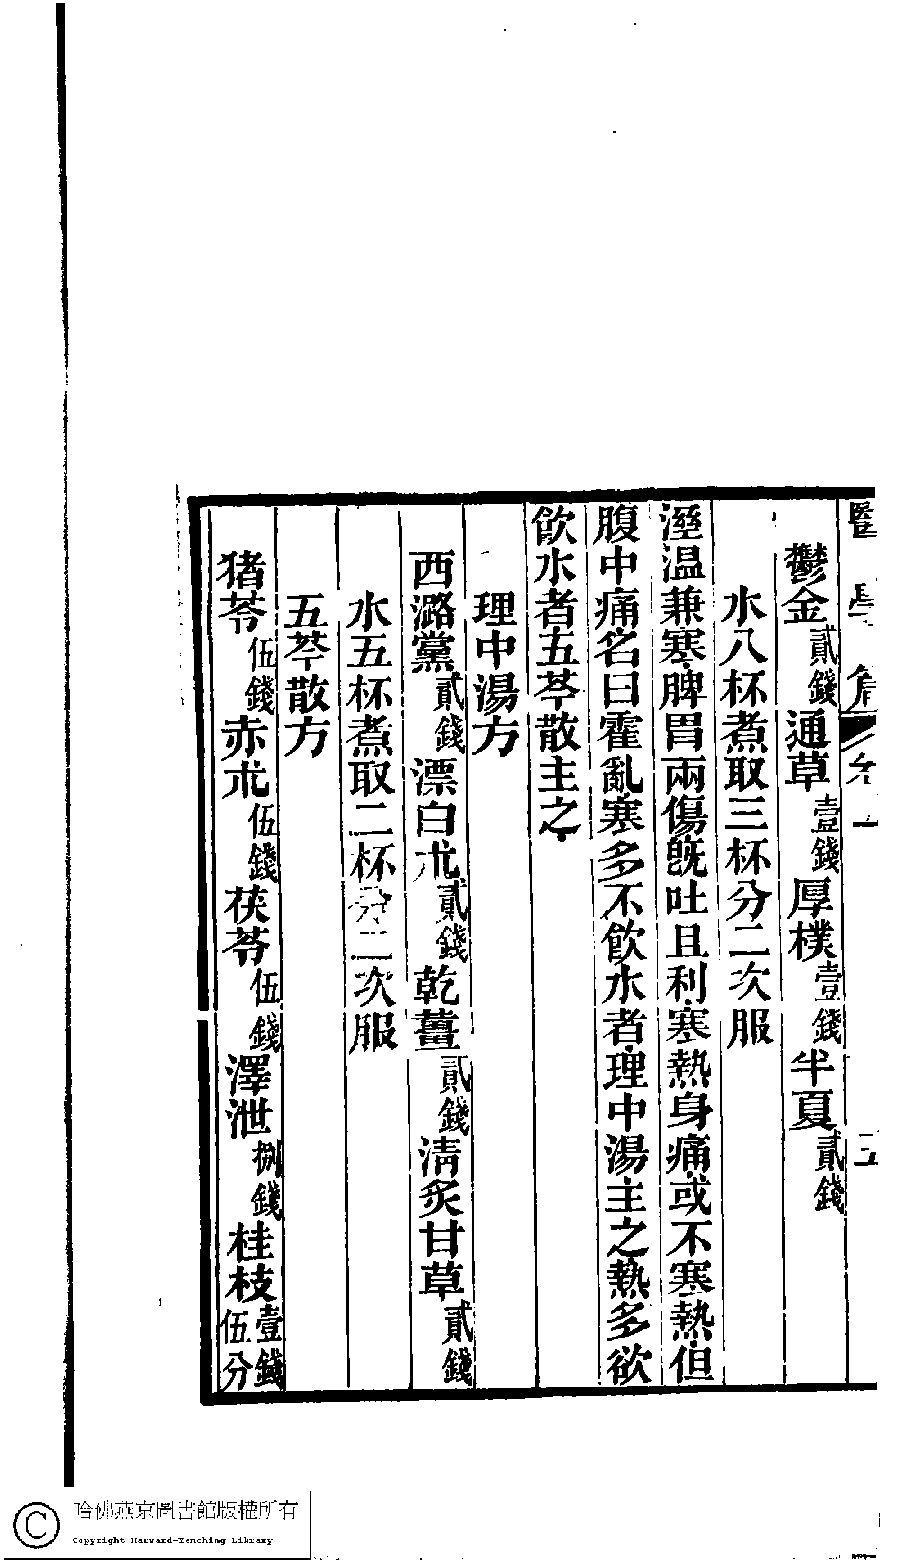 醫學
鬱金貳錢通草壹錢厚樸壹錢半夏貳錢
水八杯煮取三杯分二次服
溼温兼寒脾胃兩傷旣吐且利寒熱身痛或不寒熱但
腹中痛名曰霍亂寒多不飮水者理中湯主之熱多欲
飮水者五苓散主之
理中湯方
西潞黨貳錢漂白朮貳錢乾薑貳錢淸炙甘草貳錢
水五杯煮取二杯分二次服
五苓散方
猪苓伍錢赤朮伍錢茯苓伍錢澤泄捌錢桂枝壹錢伍分
哈佛燕京圖書館版權所有
Copyright Harvard-Yenching Library